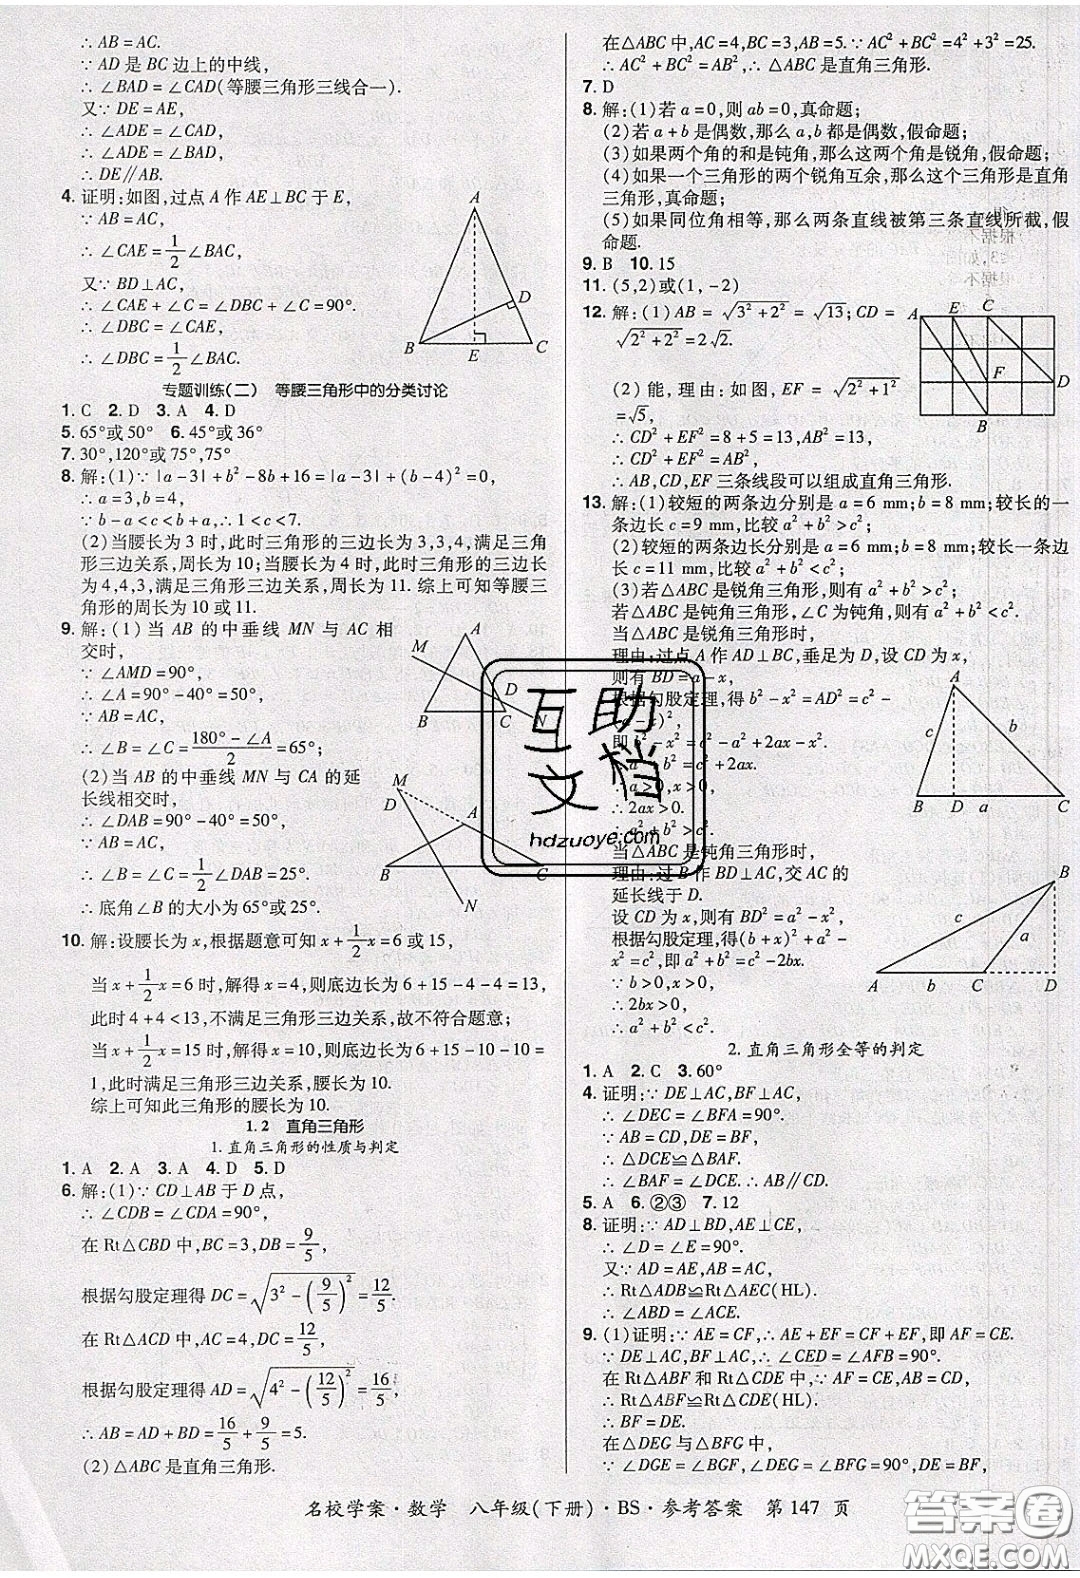 ∴ AB = AC.
∵ AD 是 BC 边上的中线,
∴ ∠BAD = ∠CAD(等腰三角形三线合一).
又∵ DE = AE,
∴ ∠ADE = ∠CAD,
∴ ∠ADE = ∠BAD,
∴ DE∥AB.
4. 证明:如图,过点 A 作 AE⊥BC 于 E,
∵ AB = AC,
∴ ∠CAE = 1/2 ∠BAC,
又∵ BD⊥AC,
∴ ∠CAE + ∠C = ∠DBC + ∠C = 90°.
∴ ∠DBC = ∠CAE,
∴ ∠DBC = 1/2 ∠BAC.
A
D
B E C
专题训练(二) 等腰三角形中的分类讨论
1. C 2. D 3. A 4. D
5. 65°或50° 6. 45°或36°
7. 30°,120°或75°,75°
8. 解:(1)∵ |a-3|+b²-8b+16=|a-3|+(b-4)²=0,
∴ a=3,b=4,
∵ b-a<c<b+a,∴ 1<c<7.
(2)当腰长为 3 时,此时三角形的三边长为 3,3,4,满足三角
形三边关系,周长为 10;当腰长为 4 时,此时三角形的三边长
为 4,4,3,满足三角形三边关系,周长为 11. 综上可知等腰三
角形的周长为 10 或 11.
9. 解:(1) 当 AB 的中垂线 MN 与 AC 相
交时,
∵ ∠AMD = 90°,
∴ ∠A = 90° - 40° = 50°,
∵ AB = AC,
∴ ∠B = ∠C = (180° - ∠A)/2 = 65°;
(2) 当 AB 的中垂线 MN 与 CA 的延
长线相交时,
∴ ∠DAB = 90° - 40° = 50°,
∵ AB = AC,
∴ ∠B = ∠C = 1/2 ∠DAB = 25°.
∴ 底角∠B 的大小为 65°或 25°.
M A
D
B C N
M
D
A
B C
N
10. 解:设腰长为 x,根据题意可知 x + 1/2 x = 6 或 15,
当 x + 1/2 x = 6 时,解得 x = 4,则底边长为 6 + 15 - 4 - 4 = 13,
此时 4 + 4 < 13,不满足三角形三边关系,故不符合题意;
当 x + 1/2 x = 15 时,解得 x = 10,则底边长为 6 + 15 - 10 - 10 =
1,此时满足三角形三边关系,腰长为 10.
综上可知此三角形的腰长为 10.
1.2 直角三角形
1. 直角三角形的性质与判定
1. A 2. A 3. A 4. D 5. D
6. 解:(1)∵ CD⊥AB 于 D 点,
∴ ∠CDB = ∠CDA = 90°,
在 Rt△CBD 中,BC = 3,DB = 9/5,
根据勾股定理得 DC = √(3² - (9/5)²) = 12/5,
在 Rt△ACD 中,AC = 4,DC = 12/5,
根据勾股定理得 AD = √(4² - (12/5)²) = 16/5,
∴ AB = AD + BD = 16/5 + 9/5 = 5.
(2) △ABC 是直角三角形.
在△ABC 中,AC = 4,BC = 3,AB = 5. ∵ AC² + BC² = 4² + 3² = 25.
∴ AC² + BC² = AB²,∴ △ABC 是直角三角形.
7. D
8. 解:(1)若 a = 0,则 ab = 0,真命题;
(2)若 a + b 是偶数,那么 a,b 都是偶数,假命题;
(3)如果两个角的和是钝角,那么这两个角是锐角,假命题;
(4)如果一个三角形的两个锐角互余,那么这个三角形是直角
三角形,真命题;
(5)如果同位角相等,那么两条直线被第三条直线所截,假
命题.
9. B 10. 15
11. (5,2)或(1,-2)
12. 解:(1) AB = √(3² + 2²) = √13; CD =
√(2² + 2²) = 2√2.
(2) 能,理由:如图, EF = √(2² + 1²)
= √5,
∴ CD² + EF² = 8 + 5 = 13,AB² = 13,
∴ CD² + EF² = AB²,
∴ AB,CD,EF 三条线段可以组成直角三角形.
A E C
F D
B
13. 解:(1)较短的两条边分别是 a = 6 mm;b = 8 mm;较长的一
条边长 c = 9 mm,比较 a² + b² > c²;
(2)较短的两条边长分别是 a = 6 mm;b = 8 mm,较长一条边
长 c = 11 mm,比较 a² + b² < c²;
(3)若△ABC 是锐角三角形,则有 a² + b² > c²;
若△ABC 是钝角三角形,∠C 为钝角,则有 a² + b² < c².
当△ABC 是锐角三角形时,
理由:过点 A 作 AD⊥BC,垂足为 D,设 CD 为 x,
则有 BD = a - x,
根据勾股定理,得 b² - x² = AD² = c² -
(a - x)²,
即 b² - x² = c² - a² + 2ax - x².
∴ a² + b² = c² + 2ax.
∵ a > 0,x > 0,
∴ 2ax > 0.
∴ a² + b² > c².
当△ABC 是钝角三角形时,
理由:过 B 作 BD⊥AC,交 AC 的
延长线于 D.
设 CD 为 x,则有 BD² = a² - x²,
根据勾股定理,得(b + x)² + a² -
x² = c²,即 a² + b² = c² - 2bx.
∵ b > 0,x > 0,
∴ 2bx > 0,
∴ a² + b² < c².
A
c b
B D a C
B
c a
A b C D
2. 直角三角形全等的判定
1. A 2. C 3. 60°
4. 证明:∵ DE⊥AC,BF⊥AC,
∴ ∠DEC = ∠BFA = 90°.
∵ AB = CD,DE = BF,
∴ △DCE≌△BAF.
∴ ∠BAF = ∠DCE. ∴ AB∥CD.
5. A 6. ②③ 7. 12
8. 证明:∵ AD⊥BD,AE⊥CE,
∴ ∠D = ∠E = 90°.
又∵ AD = AE,AB = AC,
∴ Rt△ADB≌Rt△AEC(HL).
∴ ∠ABD = ∠ACE.
9. (1)证明:∵ AE = CF,∴ AE + EF = CF + EF,即 AF = CE.
∵ DE⊥AC,BF⊥AC,∴ ∠CED = ∠AFB = 90°.
在 Rt△ABF 和 Rt△CDE 中,∵ AF = CE,AB = CD,
∴ Rt△ABF≌Rt△CDE(HL).
∴ BF = DE.
在△DEG 与△BFG 中,
∵ ∠DGE = ∠BGF,∠DEG = ∠BFG = 90°,DE = BF,
互助
文档
hdzuoye.com
名校学案·数学 八年级(下册)·BS·参考答案 第 147 页
答案圈
MXQE.COM